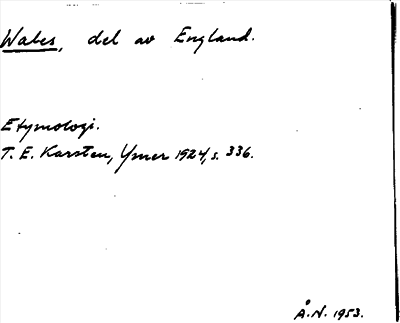 Wales, del av England.
Etymologi.
T. E. Karsten, Ymer 1924, s. 336.
Å. N. 1953.